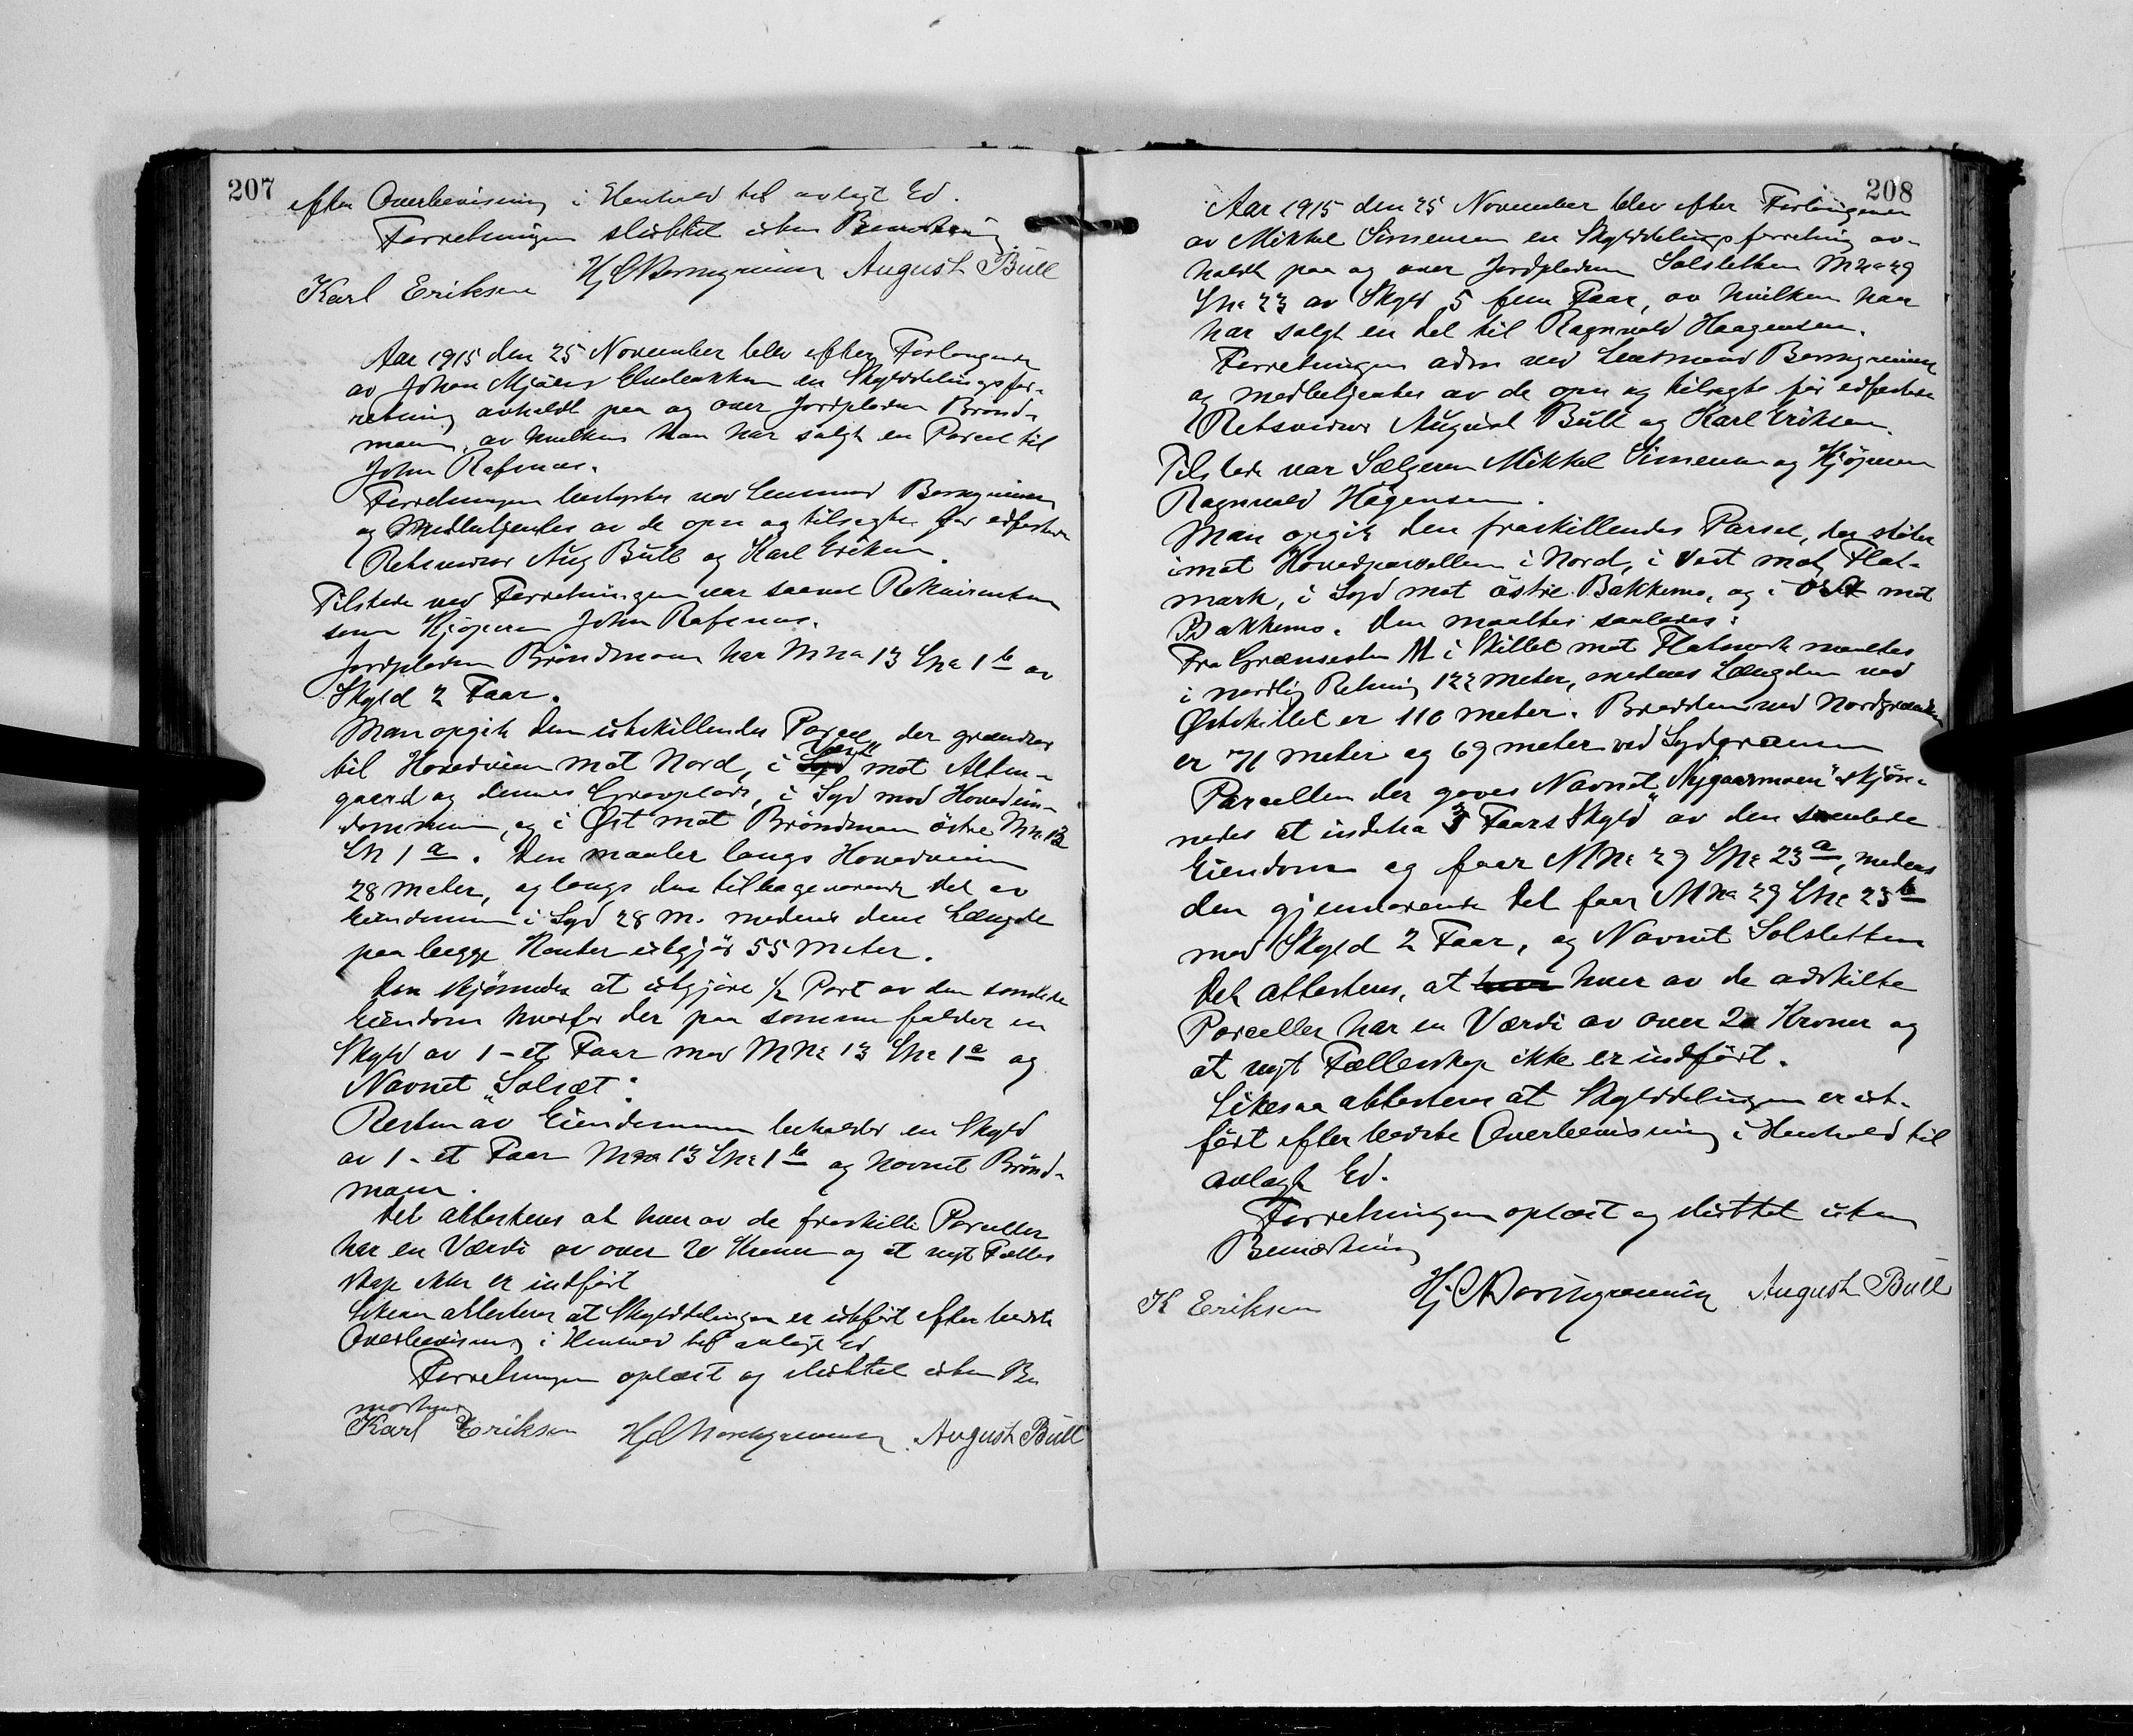 207
efter Overbevisning i Henhold til avlagt Ed.
Forretningen sluttet uten Bemerkning
Karl Eriksen August Bull
Aar 1915 den 25 November blev efter Forlangende
av Johan Mjøen Elvebakken en Skylddelingsfor-
retning avholdt paa og over Jordpladsen Brønd-
moen, av hvilken han har solgt en Parcel til
John Rafsnæs.
Forretningen bestyrtes ved Lensmand
og Medbetjentes av de opn og tilsagte før edfæstede
Retsvidner Aug Bull og Karl Eriksen.
Tilstede ved Forretningen var saavel Rekvirenten
som Kjøperen John Rafsnæs.
Jordpladsen Brøndmoen har MNo 13 LNo 1 b av
Skyld 2 Faar.
Man opgik den utskillendes Parcel, der grændser
til Hovedveien mot Nord, i Vest mot Alten-
gaard og dennes Gravplads, i Syd mod Hovedein-
dommen, og i Øst mot Brøndmoen østre MNo 13
LN 1 a. Den maaler langs Hovedveien
28 meter, og langs den tilbageværende Del av
Eiendommen i Syd 28 m. medens dens Længde
paa begge Kanter utgjør 55 meter.
Den skjønnedes at utgjøre 1/2 Part av den samlede
Eiendom hvorfor der paa samme falder en
Skyld av 1 - et Faar med MNo 13 LNo 1 c og
Navnet "Solsæt".
Resten av Eiendommen beholder en Skyld
av 1 - et Faar MNo 13 LNo 1 b og Navnet Brønd-
moen.
Det attesteres at hver av de fraskilte Parceller
har en Værdi av over 20 Kroner og at nyt Fælles
skap ikke er indført
Likesaa attesteres at Skylddelingen er utført efter bedste
Overbevisning i Henhold til avlagt Ed
Forretningen oplæst og sluttet uten Be
mærkning
Karl Eriksen August Bull
208
Aar 1915 den 25 November blev efter Forlangende
av Mikkel Simensen en Skylddelingsforretning av-
holdt paa og over Jordpladsen Solsletten MNo 29
LNo 23 av Skyld 5 fem Faar, av hvilken han
har solgt en Del til Ragnvald Haagensen.
Forretningen adm ved Lensmand
og medbetjentes av de opn og tilsagte før edfæstede
Retsvidner August Bull og Karl Eriksen.
Tilstede var Sælgeren Mikkel Simensen og Kjøperen
Ragnvald Hågensen.
Man opgik den fraskillendes Parsel, der støter
imot Hovedparsellen i Nord, i Vest mot Flat-
mark, i Syd mot østre Bakkemo, og i Øst mot
Bakkemo. Den maaltes saaledes:
Fra Grænsesten M i Skillet mot Flatmark maaltes
i nordlig Retning 122 meter, medens Længden ved
Østskillet er 110 meter. Bredden ved Nordgrænsen
er 71 meter og 69 meter ved Sydgrænsen
Parcellen der gaves Navnet "Nygaarmoen" skjøn-
nedes at indeha 3 Faars Skyld av den samlede
Eiendom og faar MNo 29 LNo 23 a, medens
den gjenværende Del faar MNo 29 LNo 23 b
med Skyld 2 Faar, og Navnet Solsletten
Det attesteres, at hver av de adskilte
Parceller har en Værdi av over 20 Kroner og
at nyt Fællesskap ikke er indført.
Likesaa attesteres at Skylddelingen er ut-
ført efter bedste Overbevisning i Henhold til
avlagt Ed.
Forretningen oplæst og sluttet uten
Bemærkning
K Eriksen August Bull